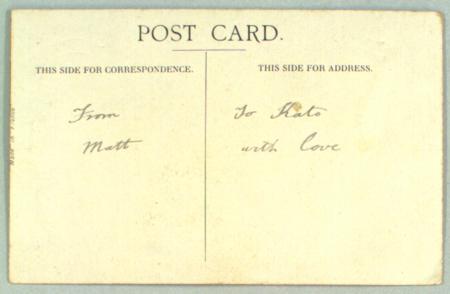 POST CARD.
THIS SIDE FOR CORRESPONDENCE.
THIS SIDE FOR ADDRESS.
From
Matt
To Kate
with Love